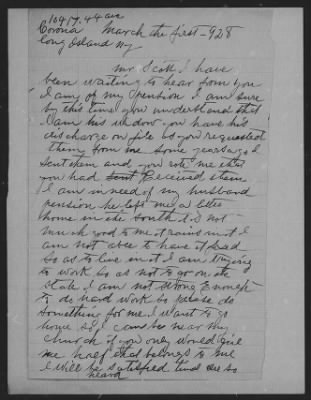 10417.44 ave
Corona March the first-928
Long Island Ny
Mr Scott, I have
been waiting to hear from you
I any of my pension I am sure
by this time you understand that
I am his widow you have his
discharge on file as you requested
them from me some years ago I
sent them and you rote me that
you had sent Received them
I am in need of my husband
pension he left me a little
home in the South it is not
much good to me it rains in it I
am not able to have it fixed
so as to live in it I am trying
to work so as not to go on the
state I am not strong enough
to do hard work so please do
something for me I want to go
home so I can be near my
church if you only would give
me half that belongs to me
I will be satisfied
heard